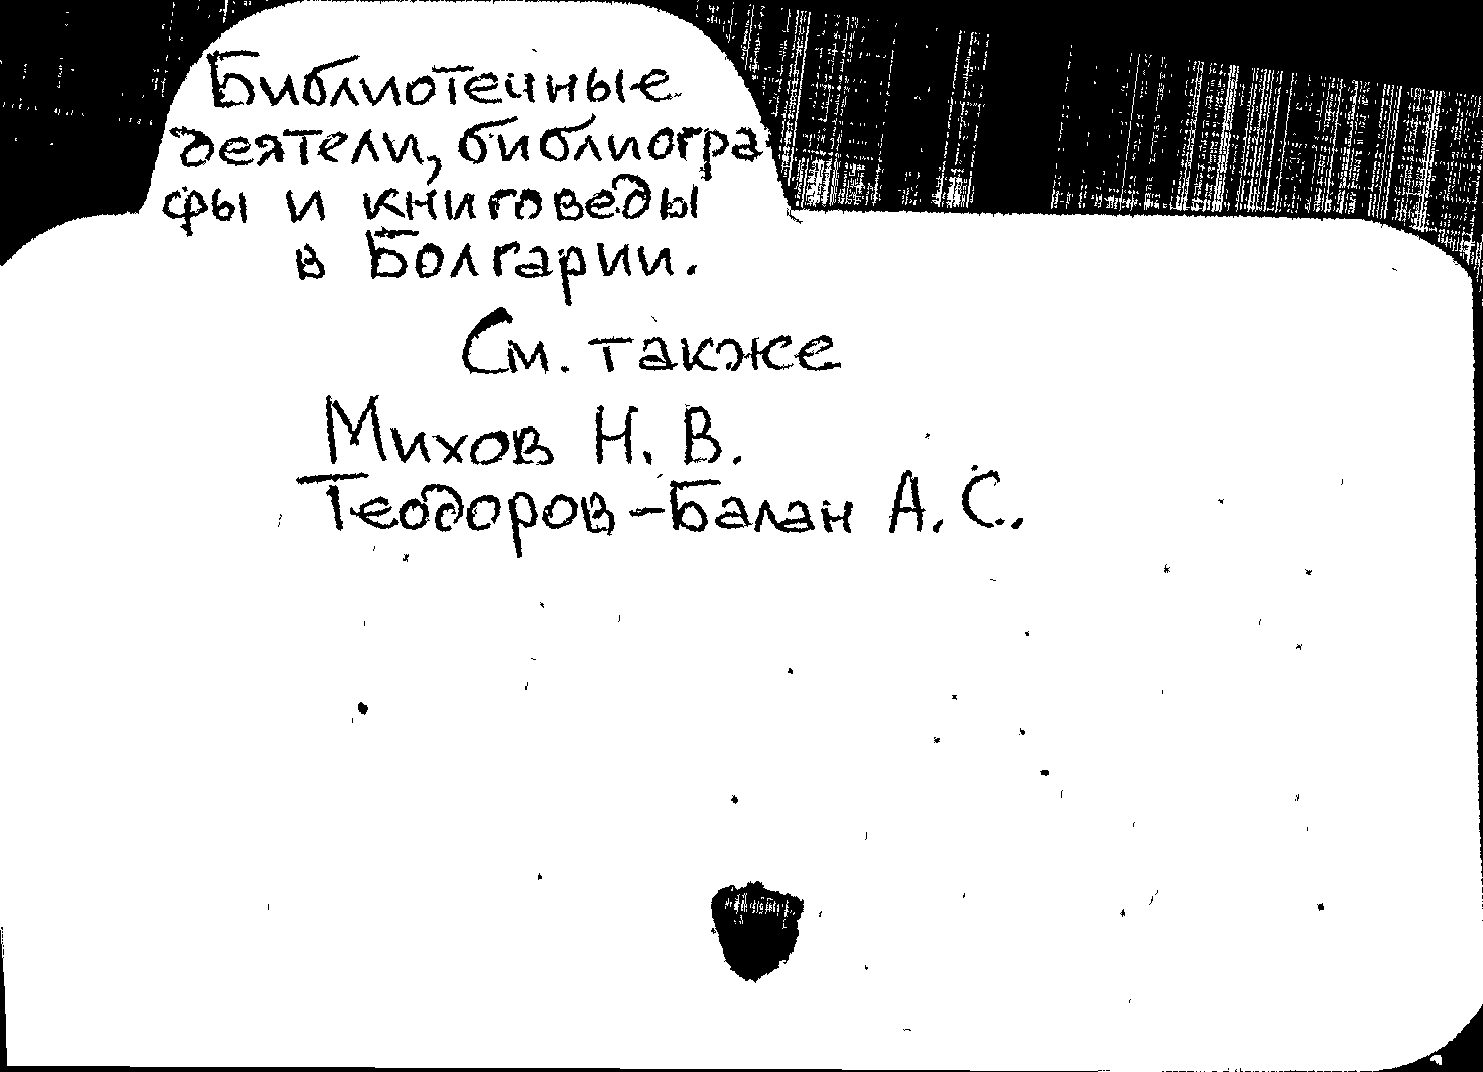 Библиотечные
деятели, библиогра-
фы и книговеды
в Болгарии.
См. также
Михов Н. В.
Теодоров-Балан А. С.